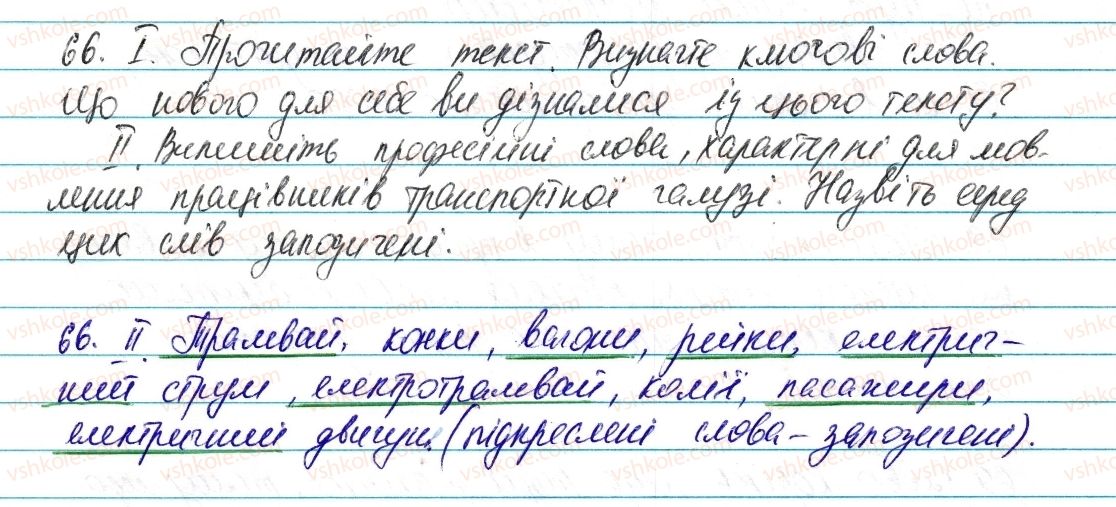 66. I. Прочитайте текст. Визначте ключові слова.
Що нового для себе ви дізналися із цього тексту?
II. Випишіть професійні слова, характерні для мов-
лення працівників транспортної галузі. Назвіть серед
цих слів запозичені.
66. II. Трамвай, конки, вагони, рейки, електрич-
ний струм, електротрамвай, колії, пасажири,
електричний двигун (підкреслені слова - запозичені).